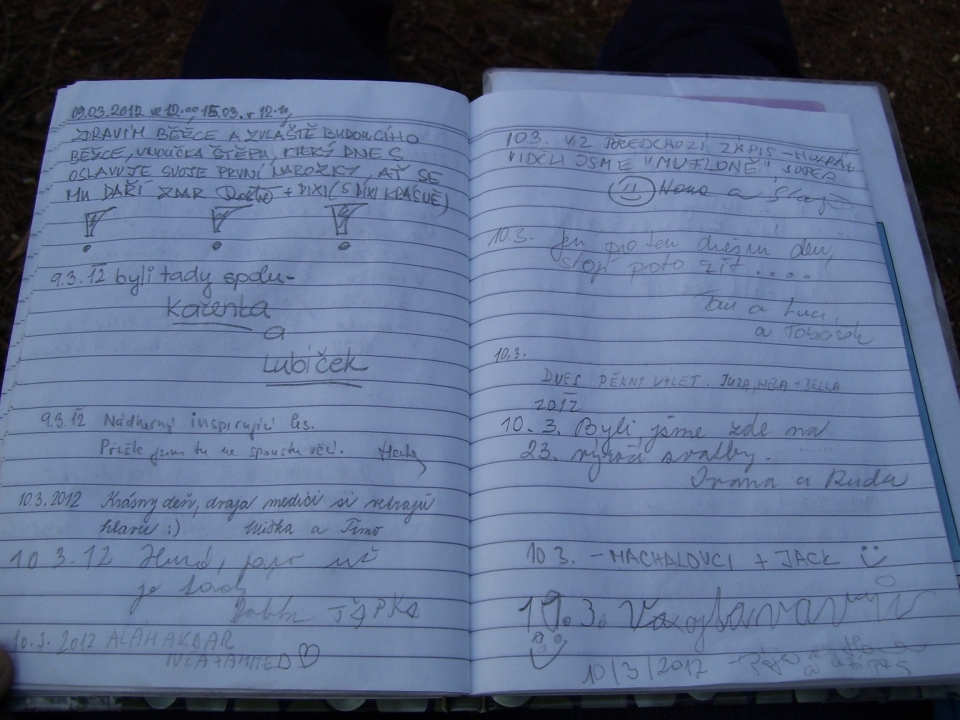 09.03.2012
ZDRAVÍM BĚŽCE A ZVLÁŠTĚ BUDOUCÍHO
BĚŽCE, VNOUČKA ŠTĚPU, KTERÝ DNES
OSLAVUJE SVOJE PRVNÍ NAROZKY, AŤ SE
MU DAŘÍ ZDAR + PIXI (S NIXI KRÁSNĚ)
9.3.12 byli tady spolu-
Kačenka
a
Lubíček
9.3.12 Nádherný inspirující les.
Přišla jsem tu na spoustu věcí.
10.3.2012 Krásny deň, dvaja medici si vetrajú
hlavu :) Miška a Timo
10.3.12 Hurá, jaro už
je tady
10.3.2012 ALAH AKBAR
10.3. VIZ PŘEDCHOZÍ ZÁPIS
VIDĚLI JSME "MUFLONĚ", SUPER
10.3. Jen pro ten dnešní den,
stojí proto žít ....
a Luci,
a Tobošek
10.3.
DNES PĚKNÝ VÝLET.
2012
10.3. Byli jsme zde na
23. výročí svatby.
Ivana a Ruda
10.3. - MACHALOVCI + JACK
10.3.
10/3/2012